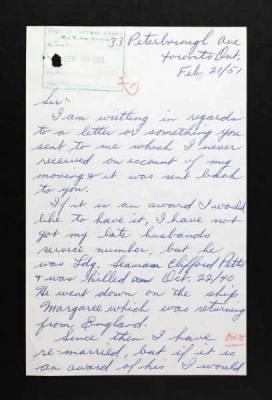 33 Peterborough Ave
Toronto Ont.
Feb. 21/51
Sir:-
I am writting in regards
to a letter or something you
sent to me which I never
received on account of my
moving & it was sent back
to you.
If it is an award I would
like to have it, I have not
got my late husbands
service number, but he
was Ldg. Seaman Clifford
& was killed Oct. 22/40
He went down on the ship
Margaree which was returning
from England.
Since then I have
re-married, but if it is
an award of his I would